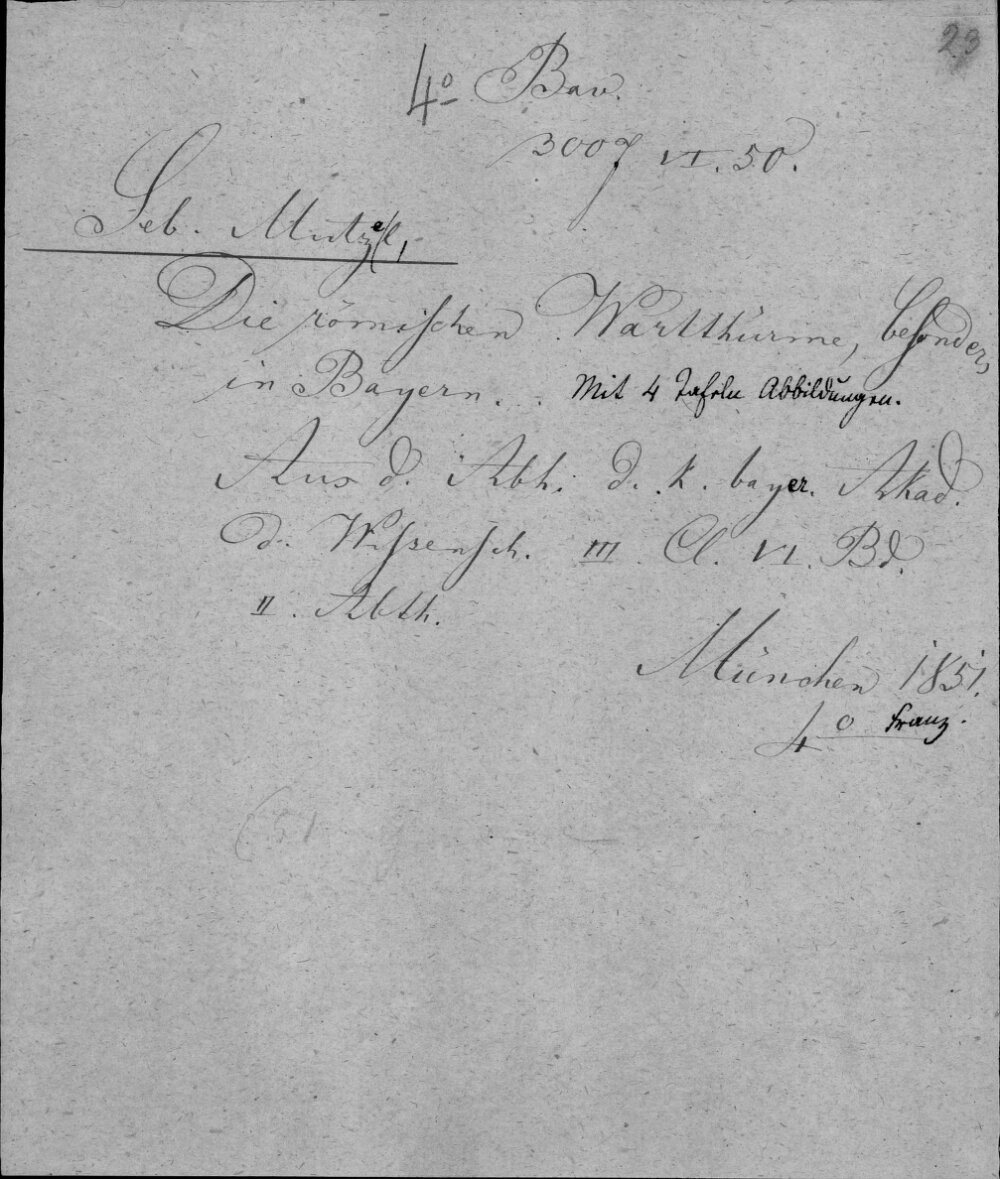 23
4° Bav.
3007 VI. 50.
Seb. Mutzel,
Die römischen Wartthürme, besonders
in Bayern. Mit 4 Tafeln Abbildungen.
Aus d. Abh. d. k. bayer. Akad.
d. Wissensch. III. Cl. VI. Bd.
II. Abth.
München 1851.
4° Franz.